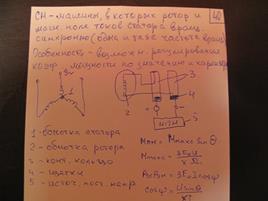 СМ - машины, в которых ротор и
магн. поле токов статора вращ.
синхронно (одна и та же частота вращ.)
Особенность - возможн. регулирования
коэф. мощности по значению и характеру
40
1 - обмотка статора
2 - обмотка ротора
3 - конт. кольцо
4 - щетки
5 - источ. пост. напр.
3~
1
2
3
4
5
+
-
Mэм = Mмакс sin θ
Mмакс =
cosφ =